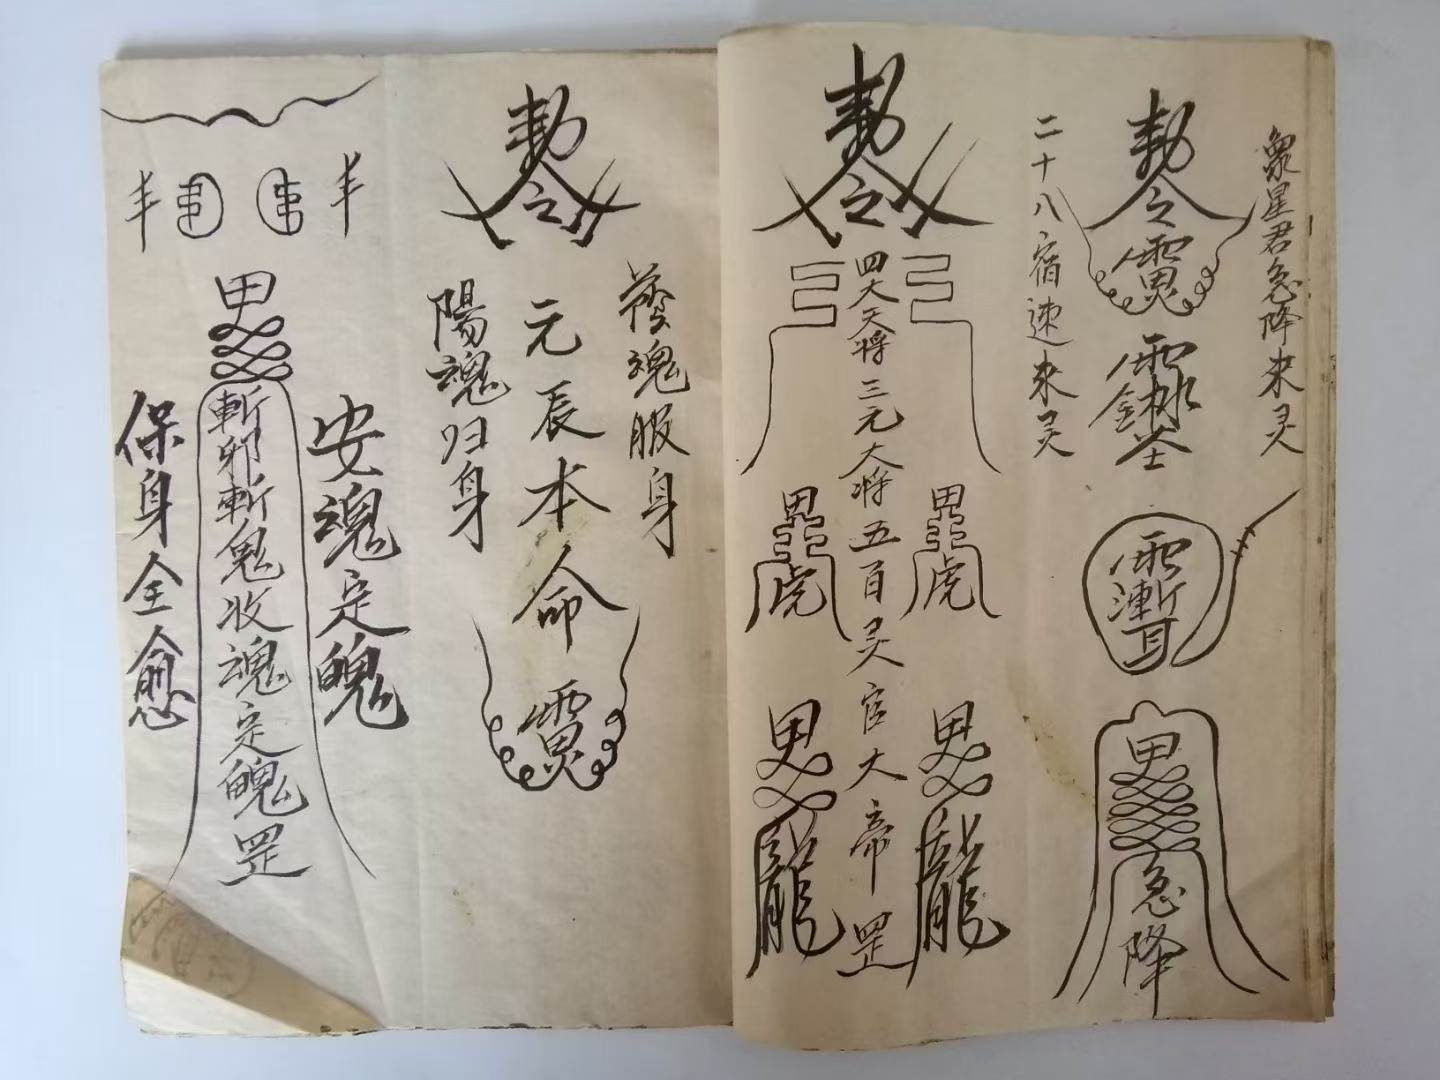 衆星君急降来灵
勅令
急降
二十八宿速来灵
勅令
四大天将三元大将五百灵官大帝罡
虎
虎
龍
龍
魂服身
勅令
元辰本命
陽魂归身
安魂定魄
斬邪斬鬼收魂定魄罡
保身全愈